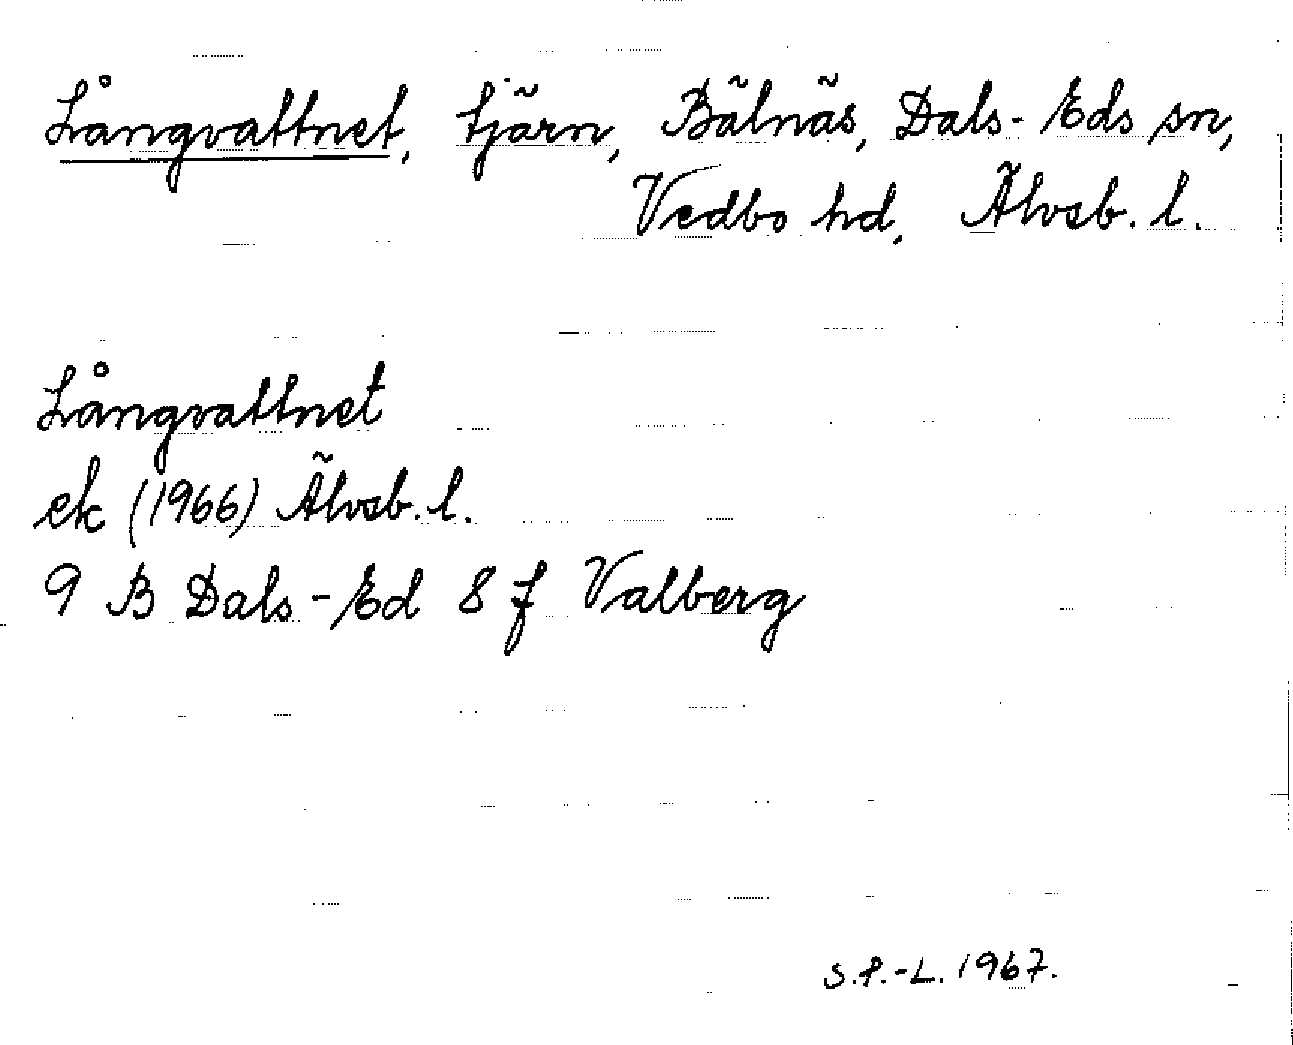 Långvattnet, tjärn, Bälnäs, Dals-Eds sn,
Vedbo hd, Älvsb. l.
Långvattnet
ek (1966) Älvsb. l.
9 B Dals-Ed 8 f Valberg
S.P.-L. 1967.